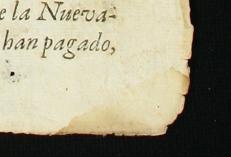 e la Nueva-
han pagado,